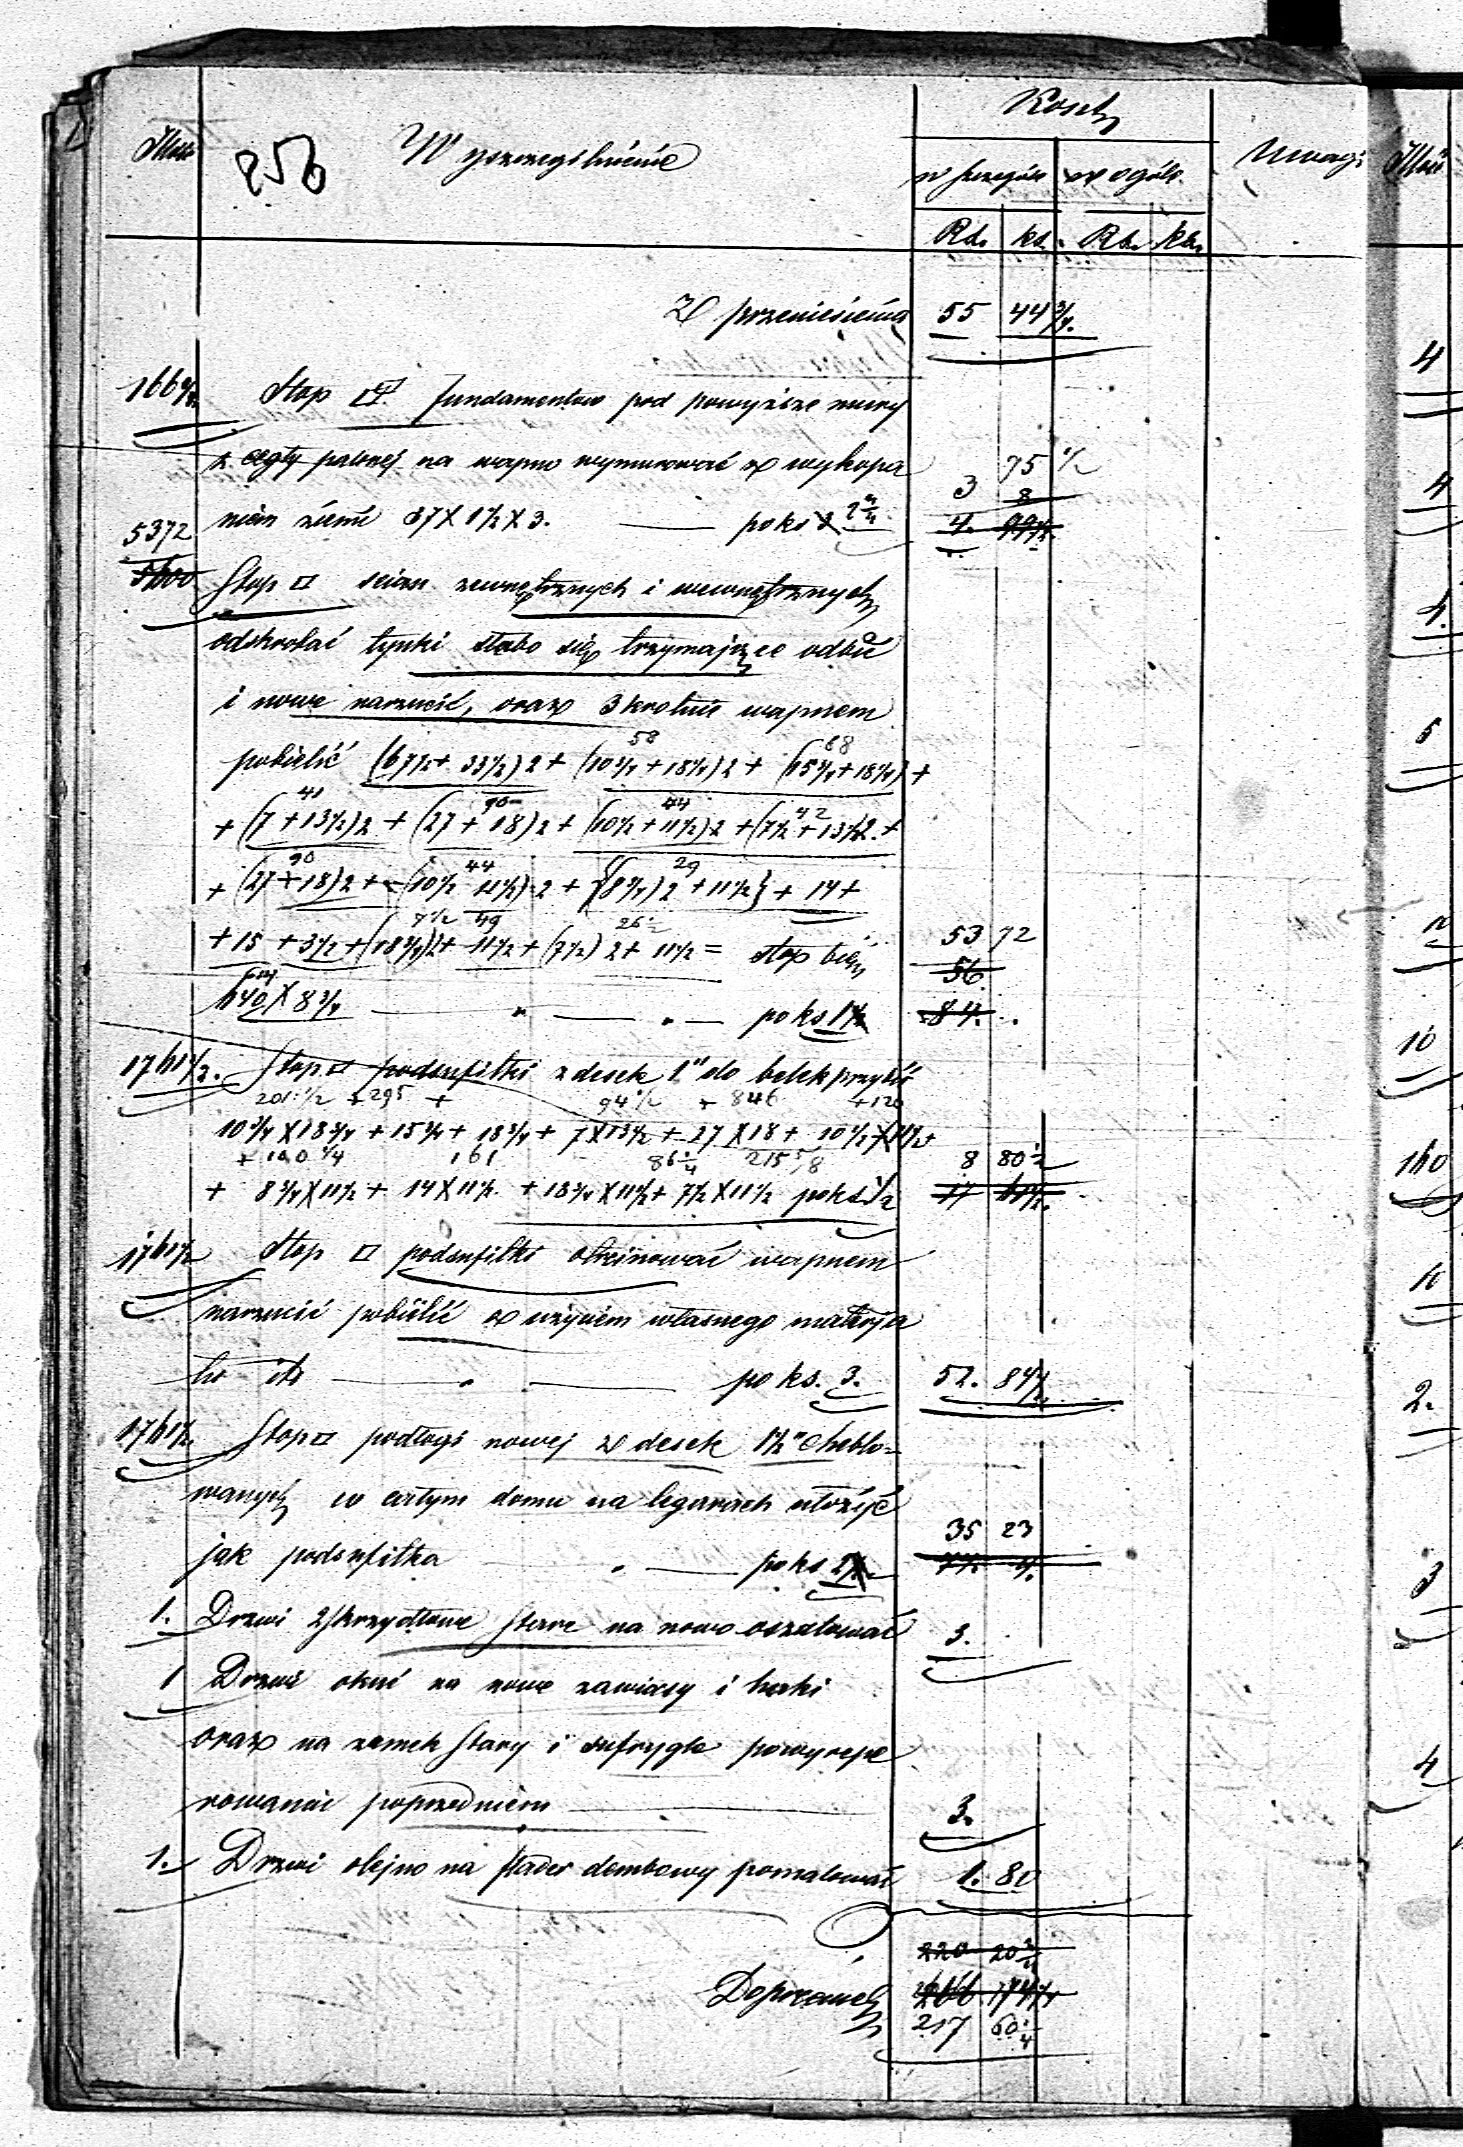 Koszta
Ilość 256 Wyszczególnienie w szczególe w ogóle Uwagi
Rs. ks. Rs. ks.
Z przeniesienia 55 44 3/4
166 1/2 Stop □ fundamentów pod powyższe mury
z cegły palonej na wapno wymurować z wykopa 75 1/2
niem ziemi 37 X 1 1/2 X 3. — po ks 2 1/4 3 8
4. 99 1/2
5372
5600 Stop □ ścian zewnętrznych i wewnętrznych
odskrobać tynki słabo się trzymające odbić
i nowe narzucić, oraz 3 krotnie wapnem
58 68
pobielić (67 1/2 + 33 1/2) 2 + (10 3/4 + 18 1/4) 2 + (15 3/4 + 18 1/4) +
41 90 44 42
+ (7 + 13 1/2) 2 + (27 + 18) 2 + (10 1/2 + 11 1/2) 2 + (7 1/2 + 13 1/2) 2. +
90 44 29
+ (27 + 18) 2 + (10 1/2 + 11 1/2) 2 + {(8 3/4) 2 + 11 1/2} + 14 +
7 1/2 49 26 1/2
+ 15 + 3 1/2 + (18 3/4) 2 + 11 1/2 + (7 1/2) 2 + 11 1/2 = stop bież 53 72
56.
614
640 X 8 3/4 — " — " — po ks 1 1/2 84.
1761 1/2. Stop □ podsufitki z desek 1" do belek przybić
201 1/2 + 295 + 94 1/2 + 846 + 120
10 3/4 X 18 3/4 + 15 3/4 + 18 3/4 + 7 X 13 1/2 + 27 X 18 + 10 1/2 X 11 1/2 +
+ 100 1/4 161 86 1/4 215 5/8 8 80 1/2
+ 8 3/4 X 11 1/2 + 14 X 11 1/2 + 18 3/4 X 11 1/2 + 7 1/2 X 11 1/2 po ks 1/2 17 61 1/2.
1761 1/2 Stop □ podsufitki otrzcinować wapnem
narzucić pobielić z użyciem własnego materja
łu itd — " — po ks. 3. 52. 84 1/2
1761 1/2. Stop □ podłogi nowej z desek 1 1/2" heblo=
wanych w całym domu na legarach ułożyć
35 23
jak podsufitka " — po ks 2
1. Drzwi 2 skrzydłowe stare na nowo oszalować 3.
1 Drzwi okuć na nowe zawiasy i haki
oraz na zamek stary i sufrygle powyrepe
rowaniu poprzedniem — 3.
1. Drzwi olejno na flader dembowy pomalować 1. 80
220 20 3/4
Do przenies. 266 174 1/4
217 60 1/4